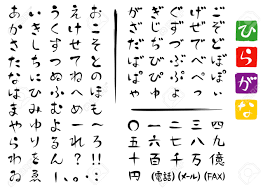 ひらがな
ごぞどぼぽ
げぜでべぺっ
ぐずづぶぷょ
ぎじぢびぴゅ
がざだばぱゃ
四九億
三八万
二七千
一六百
〇五十円
(電話) (メール) (FAX)
おこそとのほ
えけせてねへめ
うくすつぬふむよるん
いきしちにひみゆりをゑ
あかさたなはまやらわゐ